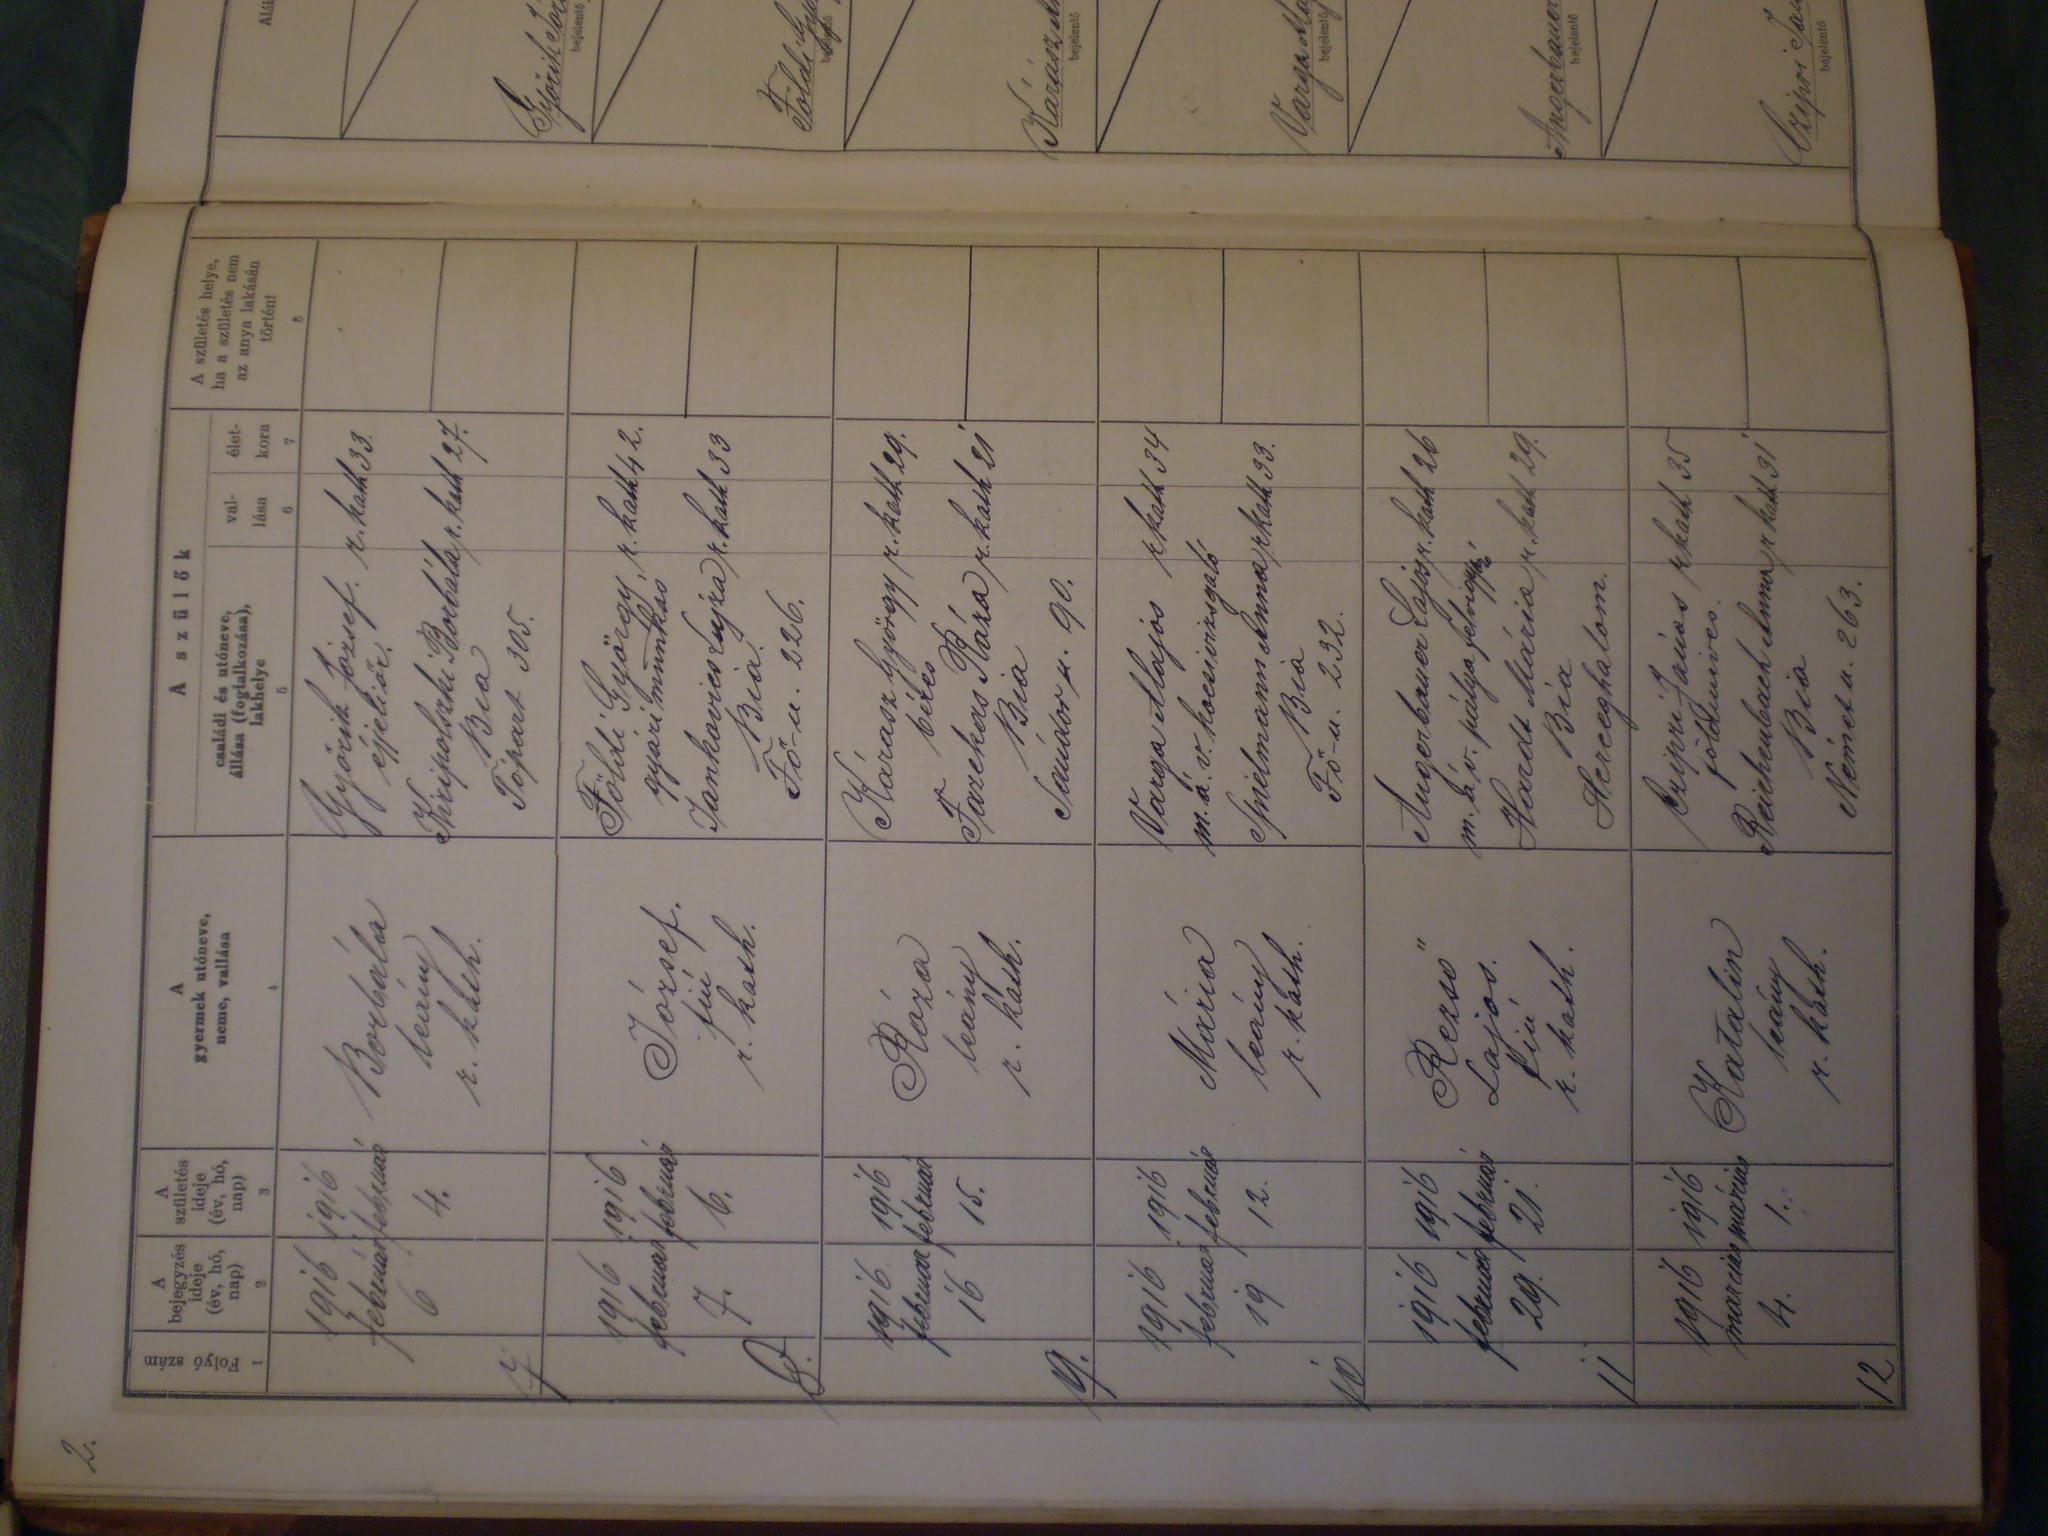 2.
Folyó szám
A bejegyzés ideje (év, hó, nap)
A születés ideje (év, hó, nap)
A gyermek utóneve, neme, vallása
A szülők
családi és utóneve, állása (foglalkozása), lakhelye
val-lása
élet-kora
A születés helye, ha a születés nem az anya lakásán történt
1 2 3 4 5 6 7 8
7
1916 február 6
1916 február 4.
Borbála
leány
r. kath.
Györik József r. kath 33.
éjjeliőr.
Borbála r. kath 27.
Bia
Tópart 305.
8.
1916 február 7.
1916 február 6.
József.
fiú
r. kath.
Földi György r. kath 42.
gyári munkás
Jankovics Lujza r. kath 33
Bia
Fő-u. 226.
9.
1916 február 16
1916 február 15.
Róza
leány
r. kath.
Kárász György r. kath 29.
béres
Fazekas Róza r. kath 21
Bia
Sándor u. 90.
10
1916 február 19
1916 február 12.
Mária
leány
r. kath.
Varga Alajos r kath 34
m. á. v. kocsivizsgáló
Spielmann Anna r kath 33.
Bia
Fő-u. 232.
11
1916 február 29.
1916 február 21.
Rezső
Lajos.
fiú
r. kath.
Angerbauer Lajos r. kath 26
m. á. v. pálya felvigyázó
Hardt Mária r. kath 29.
Bia
Herceghalom.
12
1916 március 4.
1916 március 1.
Katalin
leány
r. kath.
Czipri János r kath 35
földmives.
Reichenbach Anna r kath 31
Bia
Német u. 263.
Györik
bejelentő
Földi
bejelentő
Kárász
bejelentő
Varga
bejelentő
Angerbauer
bejelentő
Czipri
bejelentő